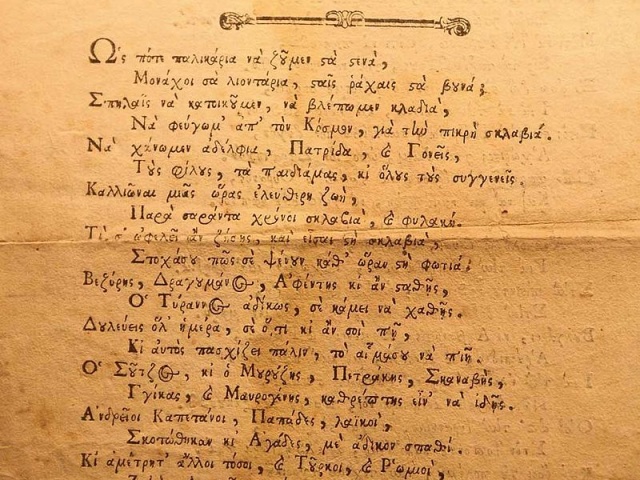 Ὡς πότε παλικάρια νὰ ζοῦμεν ςὰ ςενὰ,
Μονάχοι σὰ λιοντάρια, ςαῖς ῥάχαις ςὰ βουνά;
Σπηλαῖς νὰ κατοικοῦμεν, νὰ βλέπωμεν κλαδιὰ,
Νὰ φεύγωμ' ἀπ' τὸν Κόσμον, γιὰ τὴν πικρὴ σκλαβιά.
Νὰ χάνωμεν ἀδέλφια, Πατρίδα, καὶ Γονεῖς,
Τοὺς φίλους, τὰ παιδιάμας, κι ὅλους τοὺς συγγενεῖς.
Καλλιῶναι μιᾶς ὥρας ἐλεύθερη ζωὴ,
Παρὰ σαράντα χρόνοι σκλαβιὰ, καὶ φυλακή.
Τί σ' ὠφελεῖ ἂν ζήσης, καὶ εἶσαι ςὴ σκλαβιὰ,
Στοχάσου πῶς σὲ ψένουν καθ' ὥραν ςὴ φωτιά;
Βεζύρης, Δραγουμάνος, Ἀφέντης κι ἂν ςαθῆς,
Ὁ Τύραννος ἀδίκως, σὲ κάμει νὰ χαθῆς.
Δουλεύεις ὅλ' ἡμέρα, σὲ ὅ,τι κι ἄν σοι πῆ,
Κι αὐτὸς πασχίζει πάλιν, τὸ αἷμάσου νὰ πιῆ.
Ὁ Σοῦτζος, κι ὁ Μουρούζης, Πετράκης, Σκαναβῆς,
Γγίκας, καὶ Μαυρογένης, καθρέπτης εἶν' νὰ ἰδῆς.
Ἀνδρεῖοι Καπετάνοι, Παπάδες, λαϊκοὶ,
Σκοτώθηκαν κι Ἀγάδες, μὲ ἄδικον σπαθί.
Κι ἀμέτρητ' ἄλλοι τόσοι, καὶ Τοῦρκοι, καὶ Ῥωμιοὶ,